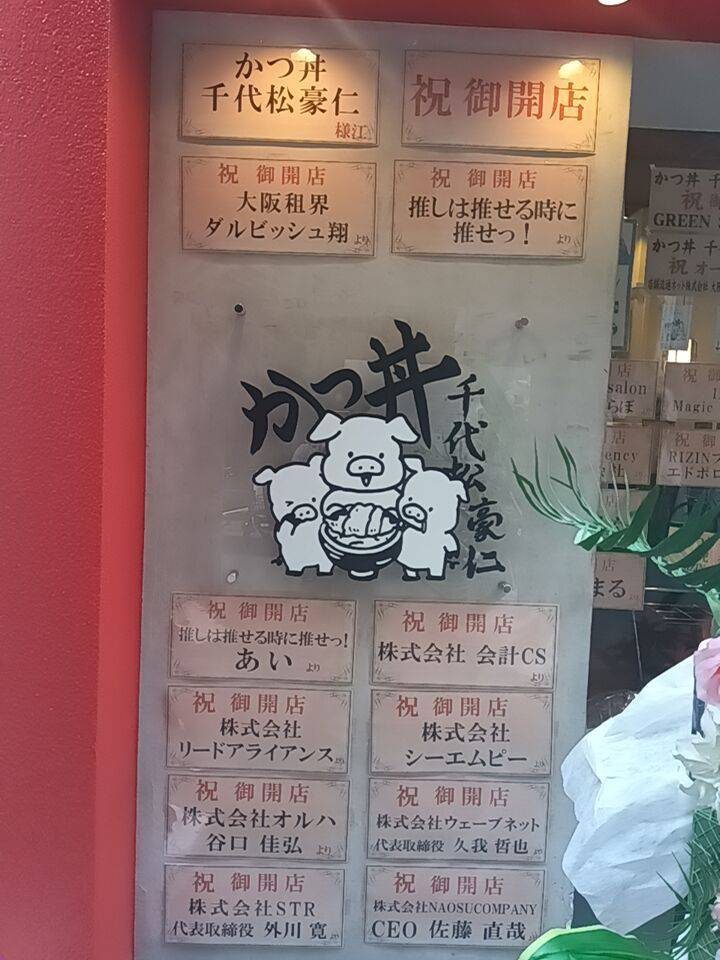 かつ丼
千代松豪仁
様江
祝 御開店
祝 御開店
大阪租界
ダルビッシュ翔 より
祝 御開店
推しは推せる時に
推せっ！ より
かつ丼
千代松豪仁
祝 御開店
推しは推せる時に推せっ!
あい より
祝 御開店
株式会社 会計CS
より
祝 御開店
株式会社
リードアライアンス より
祝 御開店
株式会社
シーエムピー より
祝 御開店
株式会社オルハ
谷口 佳弘 より
祝 御開店
株式会社ウェーブネット
代表取締役 久我 哲也 より
祝 御開店
株式会社STR
代表取締役 外川 寛 より
祝 御開店
株式会社NAOSUCOMPANY
CEO 佐藤 直哉 より
かつ丼 千
祝
GREEN
かつ丼 千
祝 オー
店舗流通ネット株式会社
店
salon
らぼ
祝 御
Magic
店
ency
祝 御
RIZIN
エドポロ
店
まる